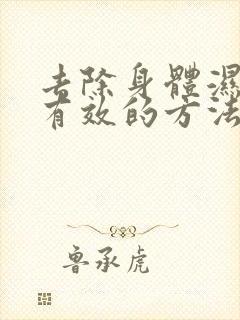 去除身體濕
有效的方法
魯承虎